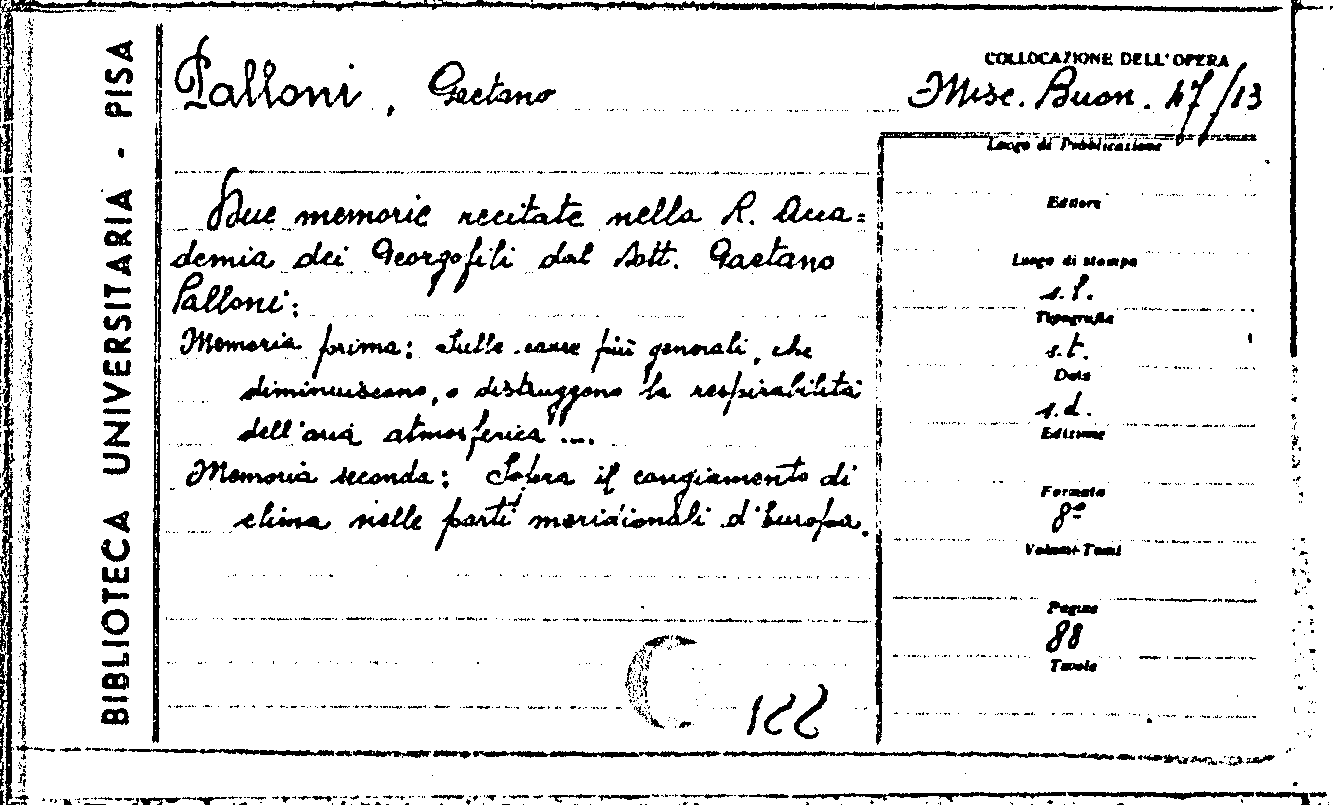 BIBLIOTECA UNIVERSITARIA - PISA
Palloni, Gaetano
COLLOCAZIONE DELL'OPERA
Misc. Buon. 47/13
Due memorie recitate nella R. Acca=
demia dei Georgofili dal Dott. Gaetano
Palloni:
Memoria prima: Sulle cause più generali, che
diminuiscono, o distruggono la respirabilità
dell'aria atmosferica ...
Memoria seconda: Sopra il cangiamento di
clima nelle parti meridionali d'Europa.
Luogo di Pubblicazione
Editore
Luogo di stampa
s.l.
Tipografia
s.t.
Data
s.d.
Edizione
Formato
8º
Volumi-Tomi
Pagine
88
Tavole